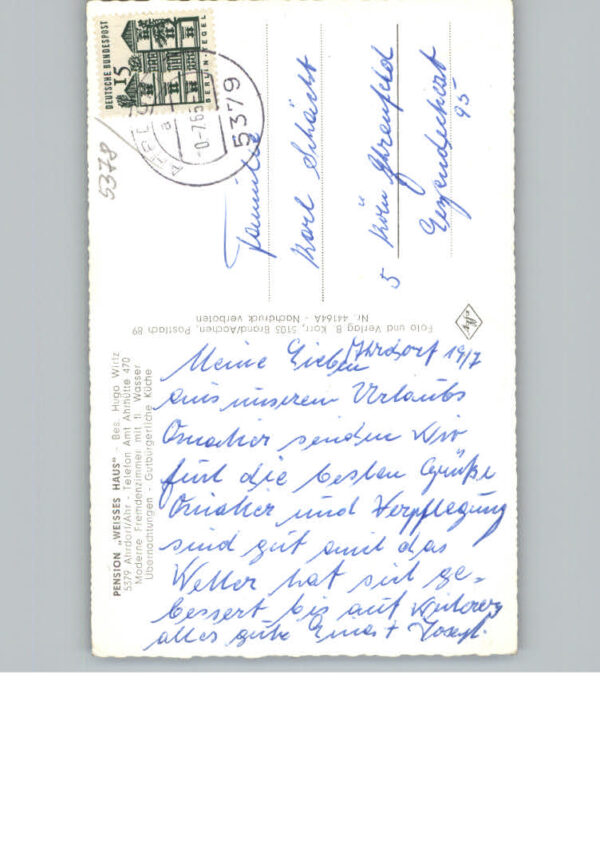 Meine Lieben Ahrdorf 19/7
aus unserem Urlaubs
senden wir
die besten Grüße
und Verpflegung
sind gut auch das
Wetter hat sich ge-
bessert bis auf weiteres
alles gute Erna + Josef.
Familie
Karl Schächt
5 Köln Ehrenfeld
95
DEUTSCHE BUNDESPOST
15
BERLIN-TEGEL
5379
a
5378
PENSION „WEISSES HAUS" - Bes. Hugo Wirtz
5379 Ahrdorf/Ahr - Telefon Amt Ahrhütte 470
Moderne Fremdenzimmer mit fl. Wasser
Übernachtungen - Gutbürgerliche Küche
Foto und Verlag B. Korr, 5103 Brand/Aachen, Postfach 89
Nr. 44164A - Nachdruck verboten